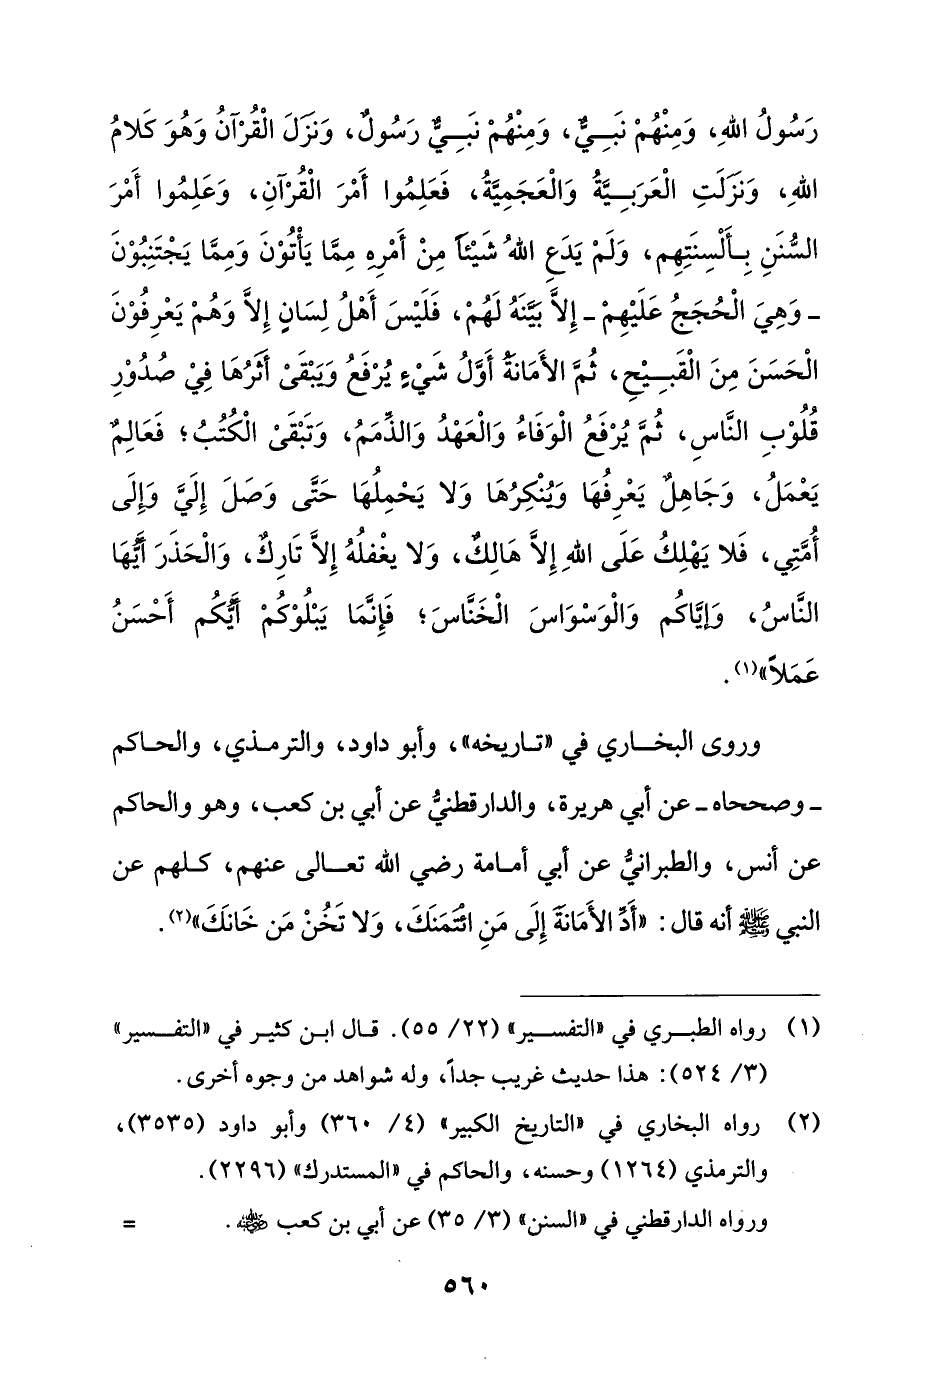 رَسُولُ اللهِ، وَمِنْهُمْ نَبِيٌّ، وَمِنْهُمْ نَبِيٌّ رَسُولٌ، وَنَزَلَ الْقُرْآنُ وَهُوَ كَلامُ
اللهِ، وَنَزَلَتِ الْعَرَبِيَّةُ وَالْعَجَمِيَّةُ، فَعَلِمُوا أَمْرَ الْقُرْآنِ، وَعَلِمُوا أَمْرَ
السُّنَنِ بِأَلْسِنَتِهِم، وَلَمْ يَدَعِ اللهُ شَيْئاً مِنْ أَمْرِهِ مِمَّا يَأْتُوْنَ وَمِمَّا يَجْتَنِبُوْنَ
- وَهِيَ الْحُجَجُ عَلَيْهِمْ - إِلاَّ بَيَّنَهُ لَهُمْ، فَلَيْسَ أَهْلُ لِسَانٍ إِلاَّ وَهُمْ يَعْرِفُوْنَ
الْحَسَنَ مِنَ الْقَبِيْحِ، ثُمَّ الأَمَانَةُ أَوَّلُ شَيْءٍ يُرْفَعُ وَيَبْقَىْ أَثَرُهَا فِيْ صُدُوْرِ
قُلُوْبِ النَّاسِ، ثُمَّ يُرْفَعُ الْوَفَاءُ وَالْعَهْدُ وَالذِّمَمُ، وَتَبْقَىْ الْكُتُبُ؛ فَعَالِمٌ
يَعْمَلُ، وَجَاهِلٌ يَعْرِفُهَا وَيُنْكِرُهَا وَلا يَحْمِلُهَا حَتَّى وَصَلَ إِلَيَّ وَإِلَى
أُمَّتِي، فَلا يَهْلِكُ عَلَى اللهِ إِلاَّ هَالِكٌ، وَلا يغْفلُهُ إِلاَّ تَارِكٌ، وَالْحَذَرَ أَيُّهَا
النَّاسُ، وَإِيَّاكُم وَالْوَسْوَاسَ الْخَنَّاسَ؛ فَإِنَّمَا يَبْلُوكُمْ أَيُّكُم أَحْسَنُ
عَمَلاً»(١).
وروى البخاري في «تاريخه»، وأبو داود، والترمذي، والحاكم
- وصححاه - عن أبي هريرة، والدارقطنيُّ عن أبي بن كعب، وهو والحاكم
عن أنس، والطبرانيُّ عن أبي أمامة رضي الله تعالى عنهم، كلهم عن
النبي ﷺ أنه قال: «أَدِّ الأَمَانَةَ إِلَى مَنِ ائْتَمَنَكَ، وَلا تَخُنْ مَن خَانَكَ»(٢).
(١) رواه الطبري في «التفسير» (٢٢/ ٥٥). قال ابن كثير في «التفسير»
(٣/ ٥٢٤): هذا حديث غريب جداً، وله شواهد من وجوه أخرى.
(٢) رواه البخاري في «التاريخ الكبير» (٤/ ٣٦٠) وأبو داود (٣٥٣٥)،
والترمذي (١٢٦٤) وحسنه، والحاكم في «المستدرك» (٢٢٩٦).
ورواه الدارقطني في «السنن» (٣/ ٣٥) عن أبي بن كعب رضي الله عنه. =
٥٦٠